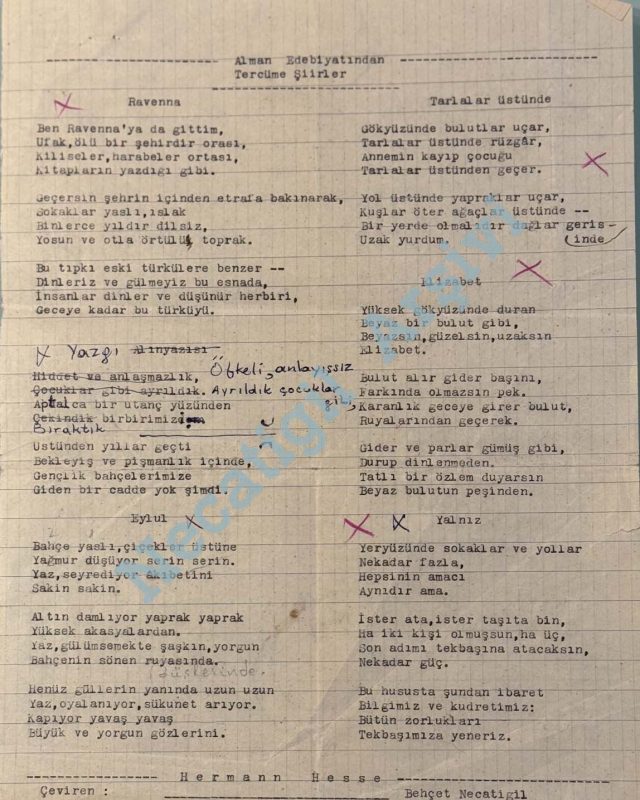 Alman Edebiyatından
Tercüme Şiirler
Ravenna
Ben Ravenna'ya da gittim,
Ufak,ölü bir şehirdir orası,
Kiliseler,harabeler ortası,
Kitapların yazdığı gibi.
Geçersin şehrin içinden etrafa bakınarak,
Sokaklar yaslı,ıslak
Binlerce yıldır dilsiz,
Yosun ve otla örtülü, toprak.
Bu tıpkı eski türkülere benzer --
Dinleriz ve gülmeyiz bu esnada,
İnsanlar dinler ve düşünür herbiri,
Geceye kadar bu türküyü.
Yazgı Alınyazısı
Hiddet ve anlaşmazlık, Öfkeli, anlayışsız
Çocuklar gibi ayrıldık. Ayrıldık çocuklar gibi,
Aptalca bir utanç yüzünden
Çekindik birbirimizden
Bıraktık
Üstünden yıllar geçti
Bekleyiş ve pişmanlık içinde,
Gençlik bahçelerimize
Giden bir cadde yok şimdi.
Eylul
Bahçe yaslı,çiçekler üstüne
Yağmur düşüyor serin serin.
Yaz,seyrediyor akıbetini
Sakin sakin.
Altın damlıyor yaprak yaprak
Yüksek akasyalardan.
Yaz,gülümsemekte şaşkın,yorgun
Bahçenin sönen ruyasında.
düşlerinde.
Henüz güllerin yanında uzun uzun
Yaz,oyalanıyor,sükunet arıyor.
Kapıyor yavaş yavaş
Büyük ve yorgun gözlerini.
Tarlalar üstünde
Gökyüzünde bulutlar uçar,
Tarlalar üstünde rüzgâr,
Annemin kayıp çocuğu
Tarlalar üstünden geçer.
Yol üstünde yapraklar uçar,
Kuşlar öter ağaçlar üstünde --
Bir yerde olmalıdır dağlar geris-
inde
Uzak yurdum.
Elizabet
Yüksek gökyüzünde duran
Beyaz bir bulut gibi,
Beyazsın,güzelsin,uzaksın
Elizabet.
Bulut alır gider başını,
Farkında olmazsın pek.
Karanlık geceye girer bulut,
Ruyalarından geçerek.
Gider ve parlar gümüş gibi,
Durup dinlenmeden.
Tatlı bir özlem duyarsın
Beyaz bulutun peşinden.
Yalnız
Yeryüzünde sokaklar ve yollar
Nekadar fazla,
Hepsinin amacı
Aynıdır ama.
İster ata,ister taşıta bin,
Ha iki kişi olmuşsun,ha üç,
Son adımı tekbaşına atacaksın,
Nekadar güç.
Bu hususta şundan ibaret
Bilgimiz ve kudretimiz:
Bütün zorlukları
Tekbaşımıza yeneriz.
Hermann Hesse
Çeviren :
Behçet Necatigil
Necatigil Arşivi